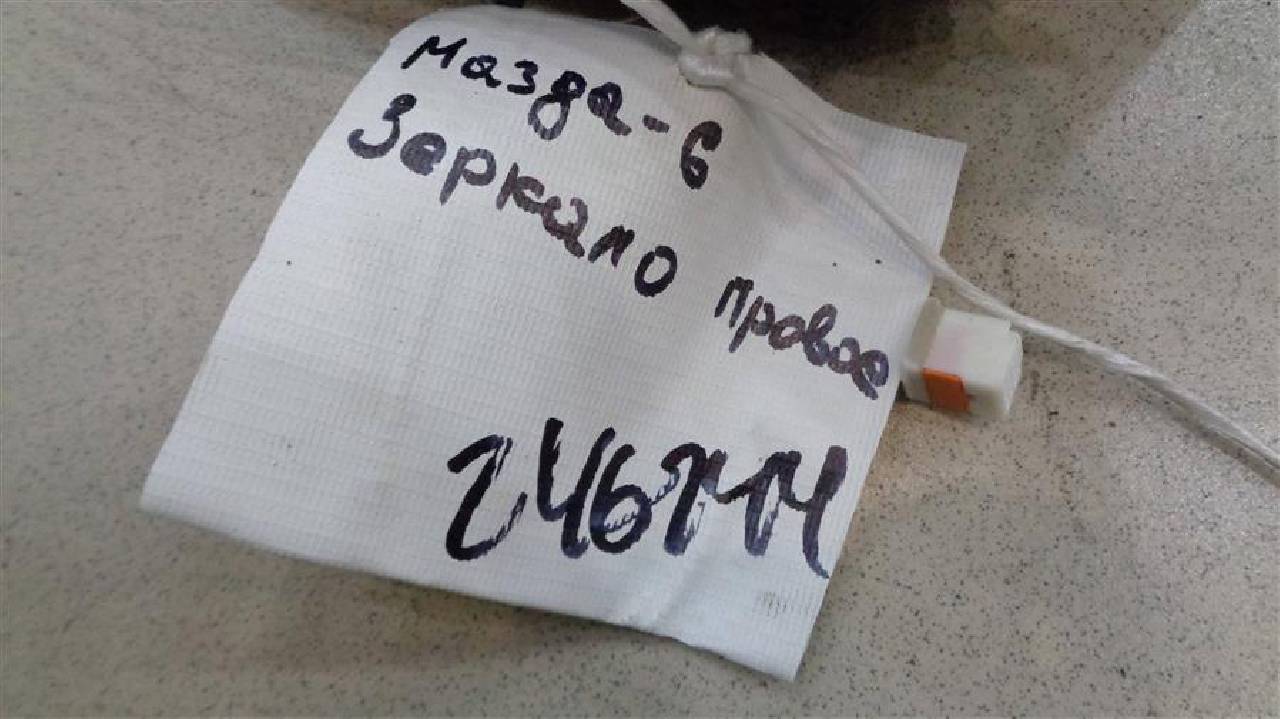 Мазда-6
Зеркало правое
246714